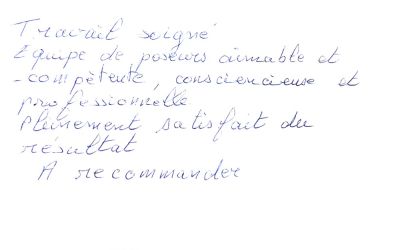 Travail soigné
Equipe de poseurs aimable et
compétente, consciencieuse et
professionnelle
Pleinement satisfait du
résultat
A recommander